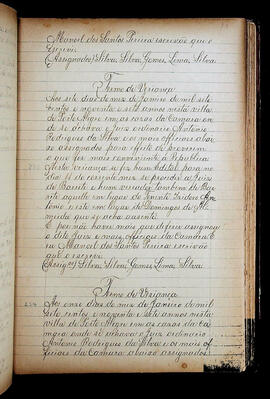 Manoel dos Santos Pereira escrivão que o
Escrevi.
(Assignados) Silva, Silva, Gomes, Lima, Silva.
Termo de Vriança
Aos sete dias do mez de Janeiro de mil sete
centos e noventa e sete annos nesta villa
de Porto Alegre em as casas da Camara on-
de se achava o Juiz ordinario Antonio
Rodrigues da Silva e os mais officiaes abai-
xo assignados para effeito de proverem
o que for mais conveniente á Republica
Nesta vriança se fez hum Edital para no
dia
de Barrete e hum vereador tambem de Bar-
rete aquelle em lugar do Tenente Izidoro An-
tonio e este em lugar de Domingos de Al-
meida que se acha ausente.
E por não haver mais que deferir assignou
o dito Juiz e mais officiaes da Camara E
eu Manoel dos Santos Pereira escrivão
que o escrevi.
(Assig.os) Silva, Silva, Gomes, Lima, Silva.
Termo de Vriança
Aos onze dias do mez de Janeiro de mil
sete centos e noventa e sete annos nesta
villa de Porto Alegre em as casas da Ca-
mara onde se achava o Juiz ordinario
Antonio Rodrigues da Silva e os mais of-
ficiaes da Camara abaixo assignados